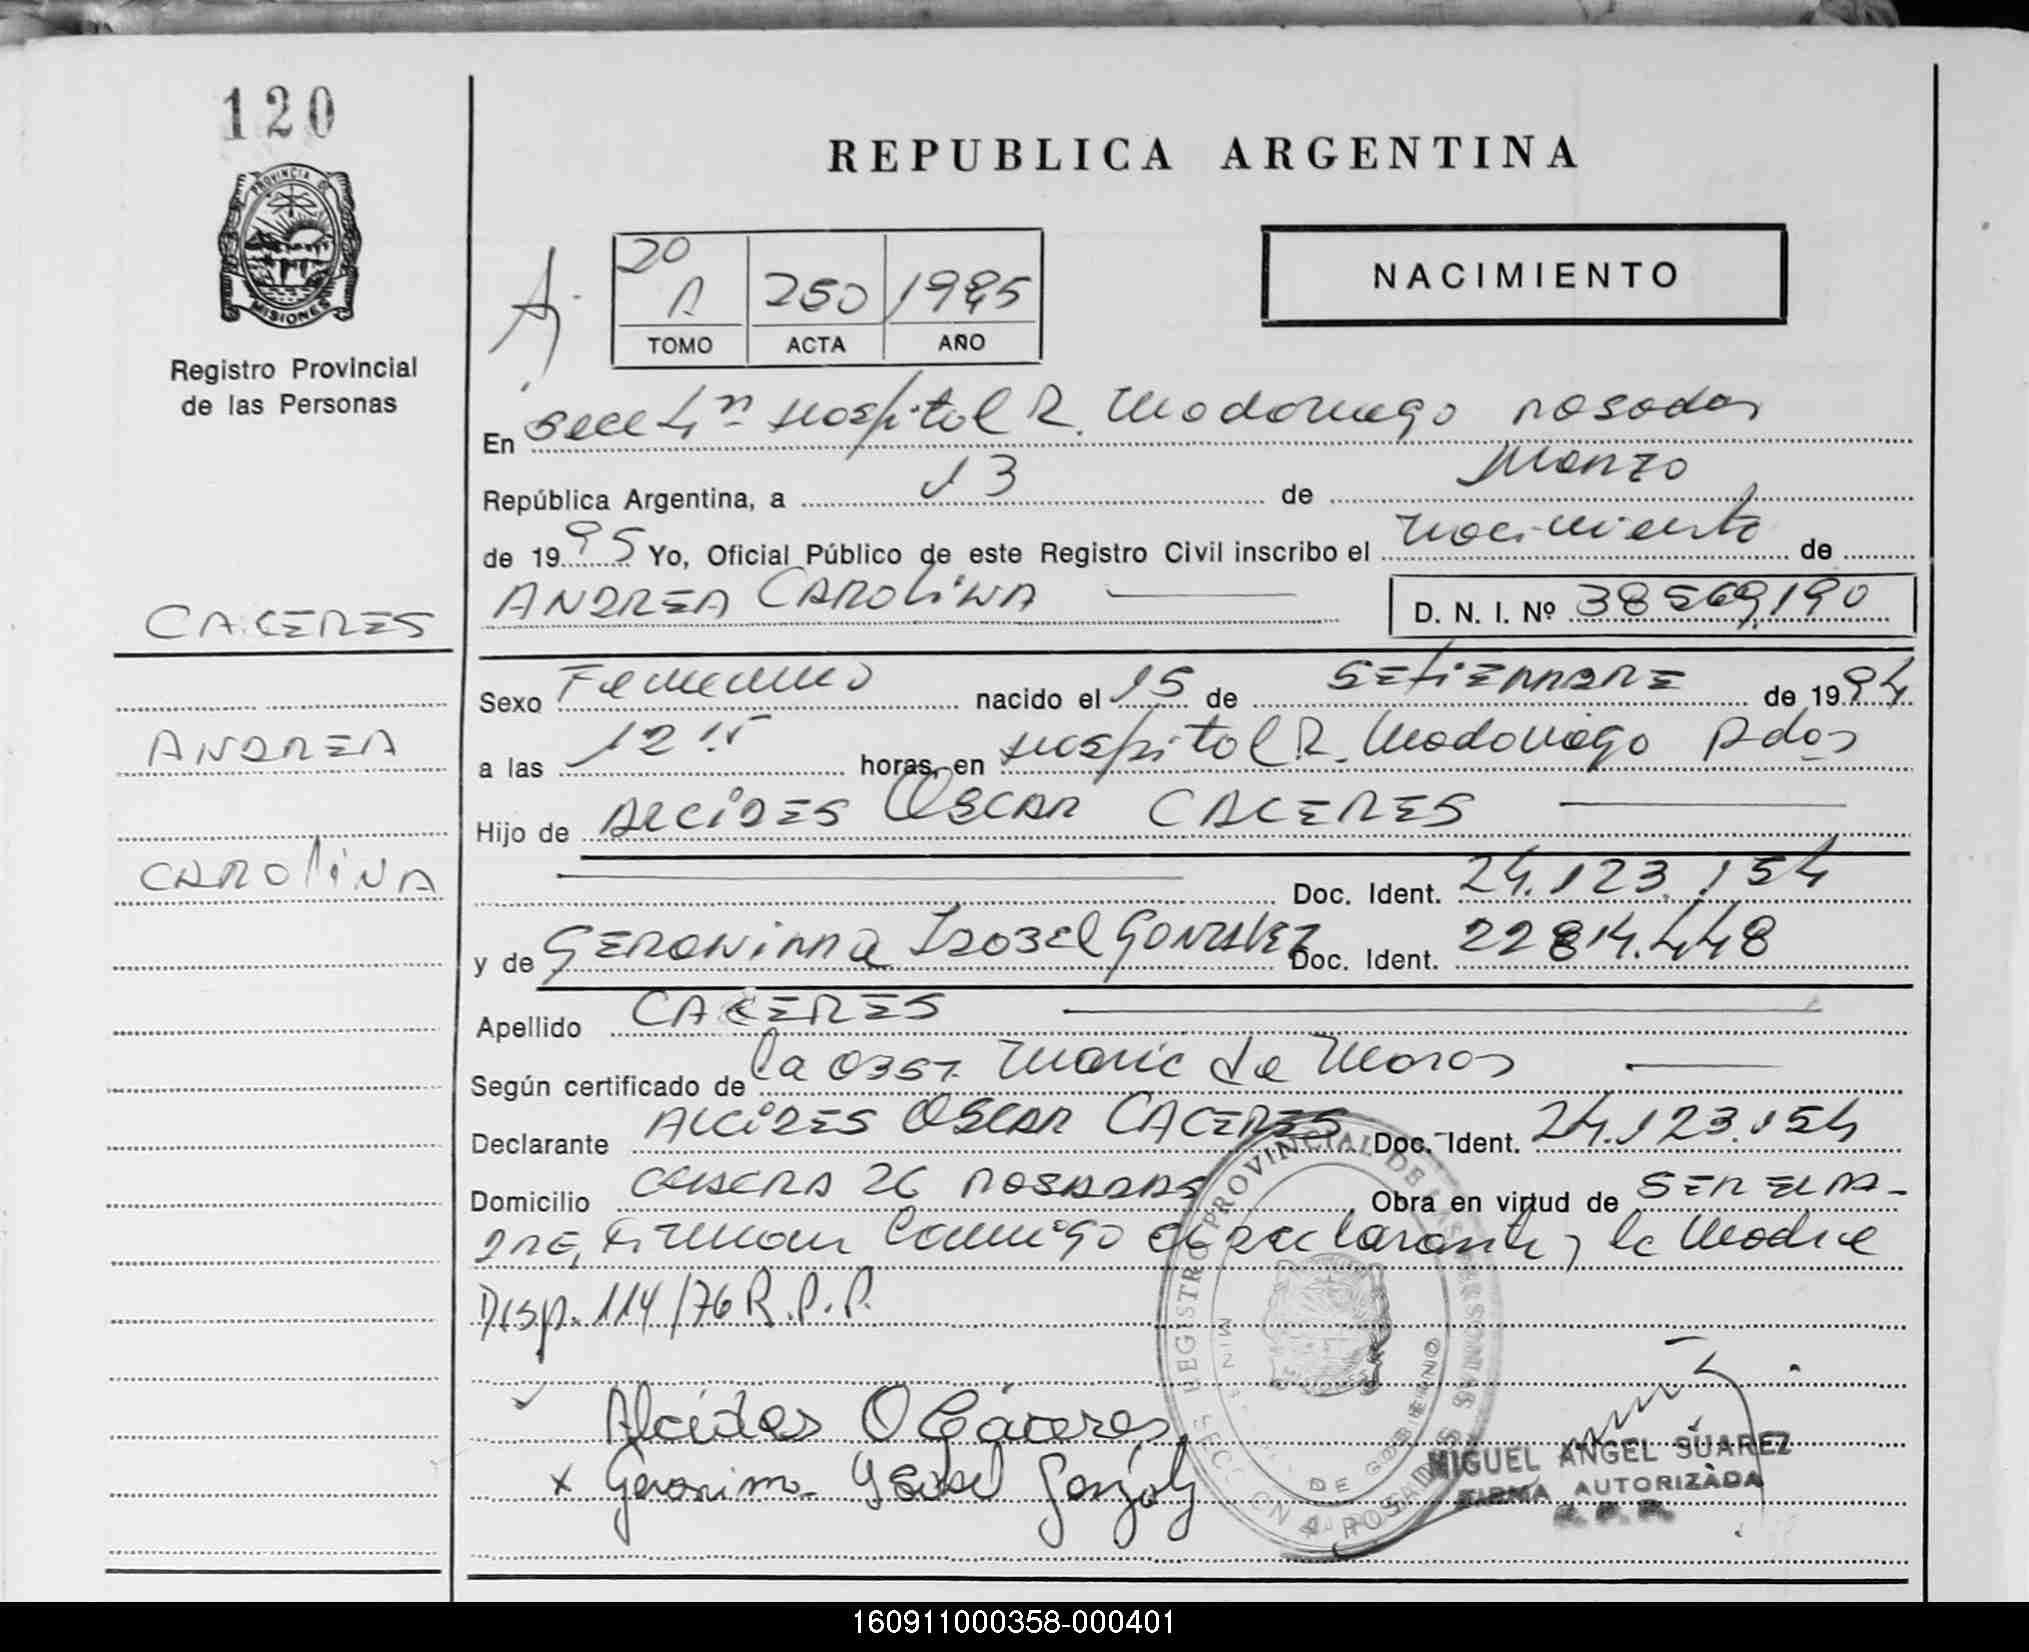 120
REPUBLICA ARGENTINA
PROVINCIA DE
MISIONES
Registro Provincial
de las Personas
20
A 250 1995
TOMO ACTA AÑO
NACIMIENTO
En Secc 4ª Hospital R. Madariaga Posadas
República Argentina, a 13 de Marzo
de 1995 Yo, Oficial Público de este Registro Civil inscribo el nacimiento de
CACERES
ANDREA CAROLINA D. N. I. Nº 38569,190
Sexo Femenino nacido el 15 de SETIEMBRE de 1994
ANDREA
a las 12 15 horas, en Hospital R. Madariaga Pdas
Hijo de ALCIDES OSCAR CACERES
CAROLINA
Doc. Ident. 24.123.154
y de GERONIMA Isabel GONZALEZ Doc. Ident. 22814.448
Apellido CACERES
Según certificado de la Obst. Maria de Moros
Declarante ALCIDES OSCAR CACERES Doc. Ident. 24.123.154
Domicilio 26 POSADAS Obra en virtud de SER EL PA-
DRE, firman Conmigo el declarante y la Madre
Disp. 114/76 R.P.P.
Alcides O Cáceres
x Geronima Ysabel Gonzalez
REGISTRO PROVINCIAL DE LAS PERSONAS
DE GOBIERNO
POSADAS
MIGUEL ANGEL SUAREZ
FIRMA AUTORIZADA
R. P. P.
160911000358-000401